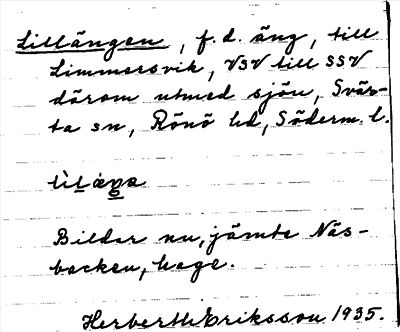 Lillängen, f. d. äng, till
Limmersvik, VSV till SSV
därom utmed sjön, Svär-
ta sn, Rönö hd, Söderm. l.
Bildar nu, jämte Näs-
backen, hage.
Herberth Eriksson 1935.